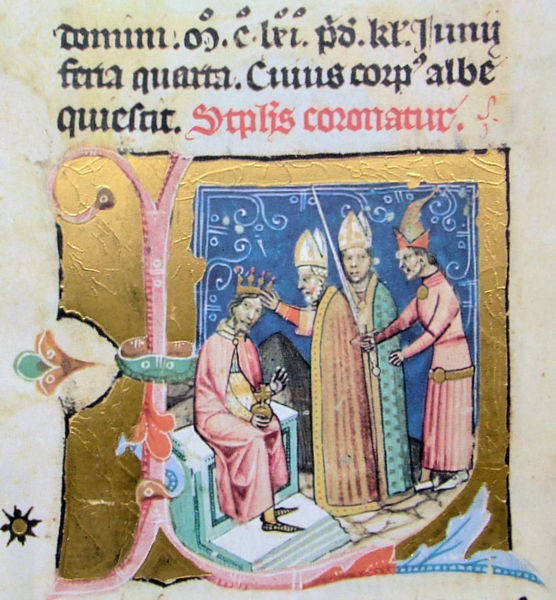 domini. m̊. c̊. lxi̊. p̄d. kł. Junij
feria quarta. Cuius corpꝰ albe
quiescit. Stph̄s coronatur.